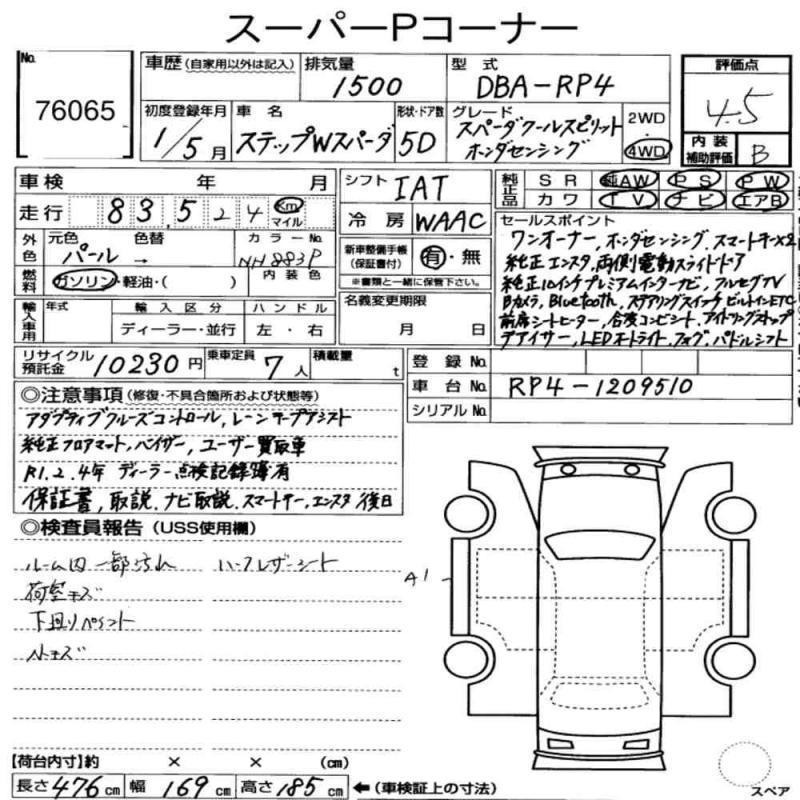 スーパーPコーナー
No. 76065
車歴(自家用以外は記入) 排気量 1500 型式 DBA-RP4 評価点 4.5
初度登録年月 1/5月 車名 ステップWスパーダ 形状・ドア数 5D グレード スパーダクールスピリット ホンダセンシング 2WD・4WD 内装補助評価 B
車検 年 月 シフト IAT 純正品 SR 純AW PS PW
走行 83,524 Km マイル 冷房 WAAC カワ TV ナビ エアB
外色 元色 パール 色替 → カラーNo. NH883P 新車整備手帳(保証書付) 有・無
※書類と一緒に保管して下さい。
セールスポイント
ワンオーナー,ホンダセンシング.スマートキー×2
純正エンスタ,両側電動スライドドア
純正10インチプレミアムインターナビ,フルセグTV
Bカメラ,Bluetooth,ステアリングスイッチ ビルトインETC
前席シートヒーター,合皮コンビシート,アイドリングストップ
デアイサー,LEDオートライト,フォグ,パドルシフト
燃料 ガソリン・軽油・( ) 内装色
輸入車用 年式 輸入区分 ディーラー・並行 ハンドル 左・右 名義変更期限 月 日
リサイクル預託金 10230円 乗車定員 7人 積載量 t 登録No.
車台No. RP4-1209510
シリアルNo.
◎注意事項(修復・不具合箇所および状態等)
アダプティブクルーズコントロール,レーンキープアシスト
純正フロアマット,バイザー,ユーザー買取車
R1.2.4年 ディーラー点検記録簿有
保証書,取説,ナビ取説.スマートキー,エンスタ後日
◎検査員報告(USS使用欄)
ルーム内一部汚れ ハーフレザーシート
荷室キズ
下回りペイント
小キズ
A1
【荷台内寸】約 × × (cm)
長さ476cm 幅169cm 高さ185cm ←(車検証上の寸法)
スペア